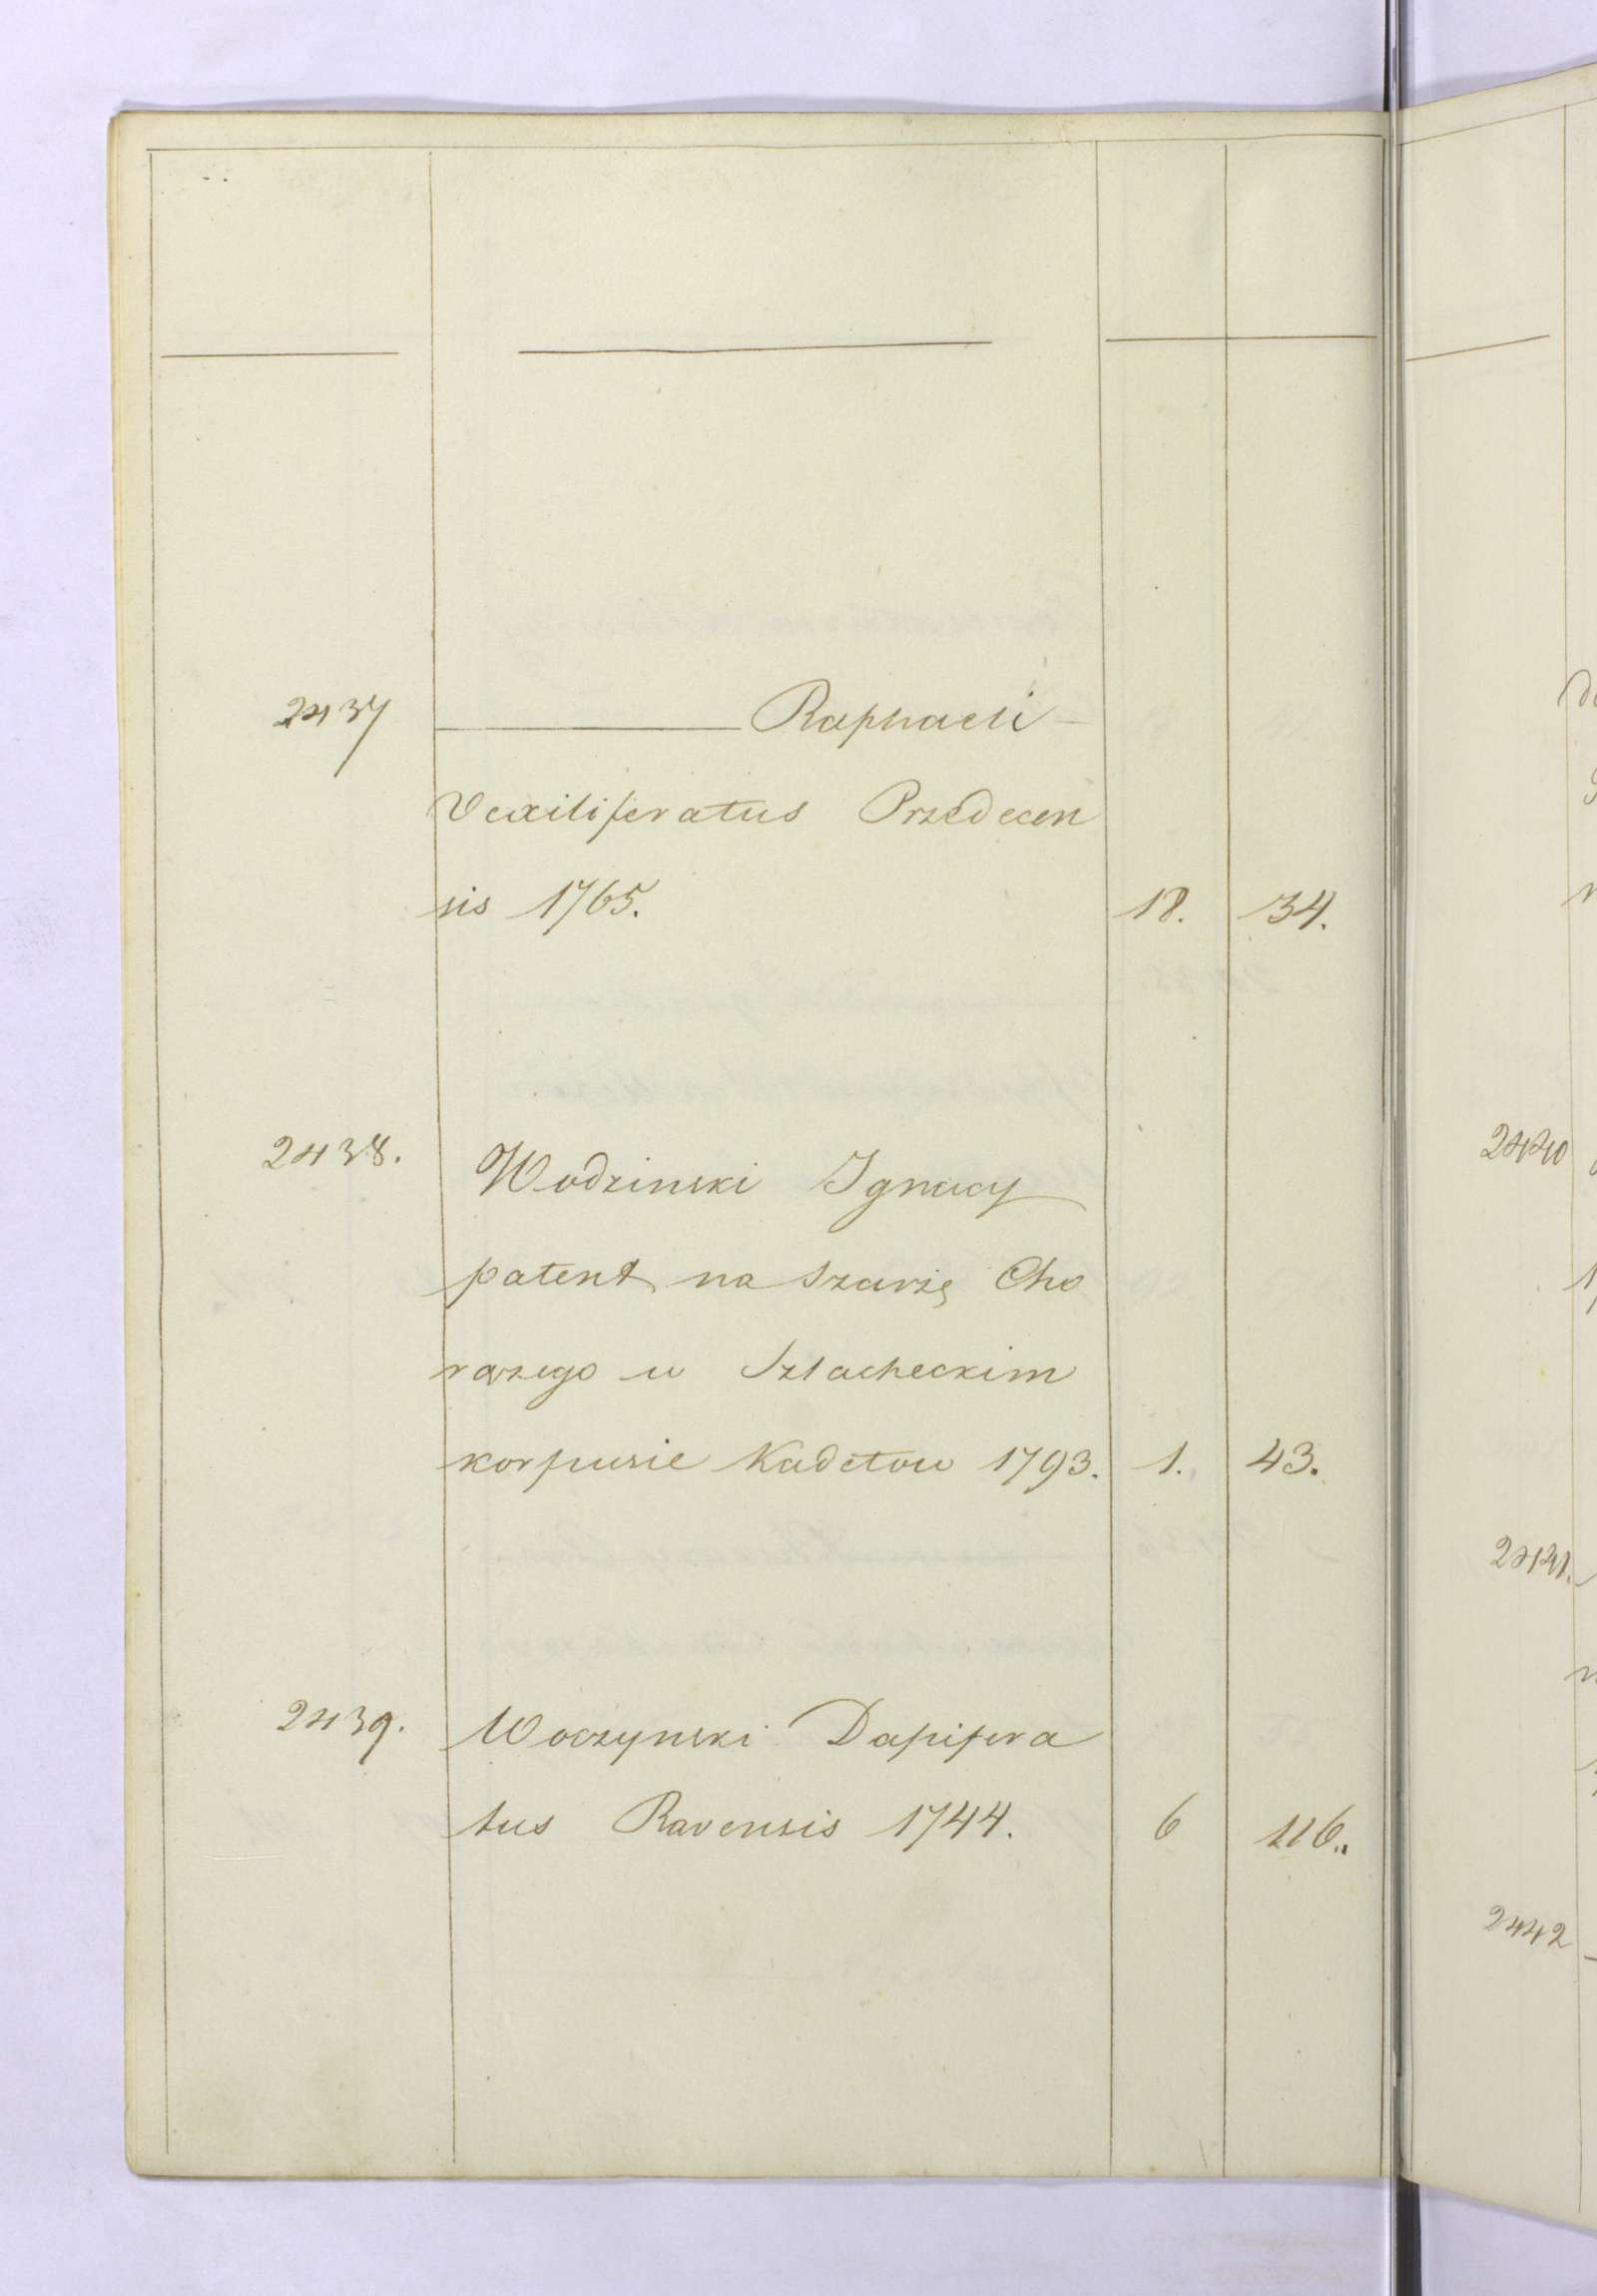 2437 Raphaeli
Vexiliferatus Przedecen
sis 1765. 18. 34.
2438. Wodzinski Ignacy
patent na szarżę Cho
rążego w Szlacheckim
korpusie Kadetow 1793. 1. 43.
2439. Woczynski Dapifera
tus Ravensis 1744. 6 116.
2440
2441.
2442